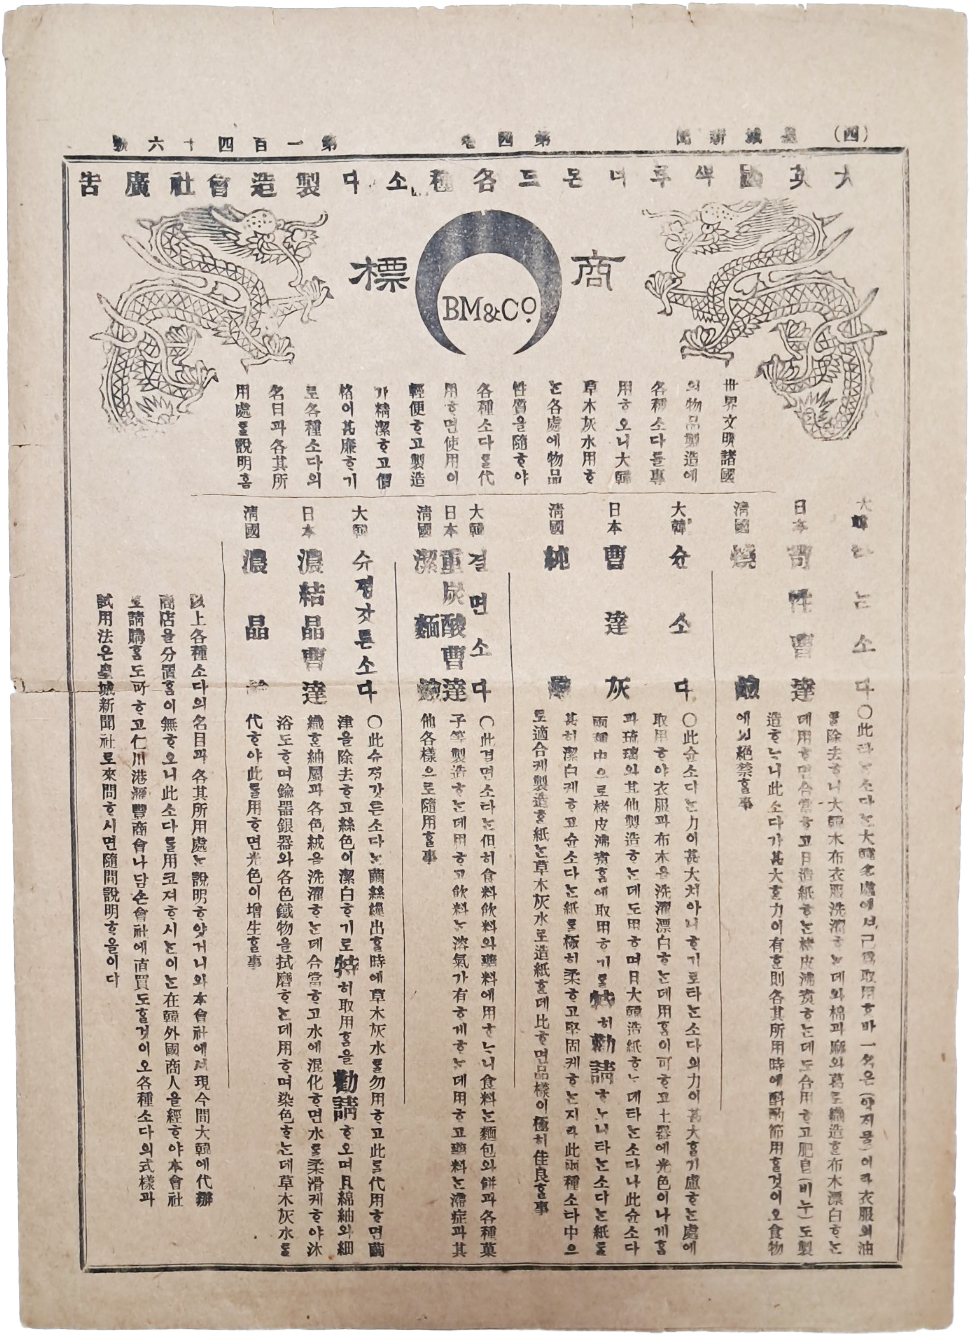 (四) 皇城新聞 第四卷 第一百四十六號
大英國 쌕루너몬드 各種소다 製造會社 廣告
商標
BM&CO
世界文明諸國
의物品製造에
各種소다를專
用ᄒᆞ오니大韓
草木灰水用ᄒᆞ
ᄂᆞᆫ各處에物品
性質을隨ᄒᆞ야
各種소다를代
用ᄒᆞ면使用이
輕便ᄒᆞ고製造
가精潔ᄒᆞ고價
格이甚廉ᄒᆞ기
로各種소다의
名目과各其所
用處를說明홈
大韓 타ᄂᆞᆫ소다
日本 苛性曹達
淸國 燒鹼
〇此타ᄂᆞᆫ소다ᄂᆞᆫ大韓各處에셔己爲取用ᄒᆞᄂᆞᆫ바一名은(양지믈)이라衣服의油
를除去ᄒᆞ니大韓木布衣服洗濯ᄒᆞᄂᆞᆫ데와棉과麻와葛로織造ᄒᆞᆫ布木漂白ᄒᆞᄂᆞᆫ
데用ᄒᆞ면合當ᄒᆞ고日造紙ᄒᆞᄂᆞᆫ楮皮沸煑ᄒᆞᄂᆞᆫ데도合用ᄒᆞ고肥皂(비누)도製
造ᄒᆞᄂᆞ니此소다가甚大ᄒᆞᆫ力이有ᄒᆞᆫ則各其所用時에斟酌節用ᄒᆞᆯ것이오食物
에ᄂᆞᆫ絕禁ᄒᆞᆯ事
大韓 슌소다
日本 曹達灰
淸國 純鹼
〇此슌소다ᄂᆞᆫ力이甚大치아니ᄒᆞ기로타ᄂᆞᆫ소다의力이甚大ᄒᆞᆷ기慮ᄒᆞᄂᆞᆫ處에
取用ᄒᆞ야衣服과布木을洗濯漂白ᄒᆞᄂᆞᆫ데用홈이可ᄒᆞ고土器에光色이나게홈
과琉璃와其他製造ᄒᆞᄂᆞᆫ데도用ᄒᆞ며日大韓造紙ᄒᆞᄂᆞᆫ데타ᄂᆞᆫ소다나此슌소다
兩種中으로楮皮沸煑홈에取用ᄒᆞ기를特히勸請ᄒᆞᄂᆞ니타ᄂᆞᆫ소다ᄂᆞᆫ紙를
甚히潔白케ᄒᆞ고슌소다ᄂᆞᆫ紙를極히柔ᄒᆞ고堅固케ᄒᆞᄂᆞᆫ지라此兩種소다中으
로適合케製造ᄒᆞᆫ紙ᄂᆞᆫ草木灰水로造紙ᄒᆞᆫ데比ᄒᆞ면品樣이極히佳良ᄒᆞᆯ事
大韓 결면소다
日本 重炭酸曹達
淸國 潔麵鹼
〇此결면소다ᄂᆞᆫ但히食料飮料와藥料에用ᄒᆞᄂᆞ니食料ᄂᆞᆫ麵包와餠과各種菓
子等製造ᄒᆞᄂᆞᆫ데用ᄒᆞ고飮料ᄂᆞᆫ溶氣가有ᄒᆞ게ᄒᆞᄂᆞᆫ데用ᄒᆞ고藥料ᄂᆞᆫ滯症과其
他各樣으로隨用ᄒᆞᆯ事
大韓 슈졍갓튼소다
日本 濃結晶曹達
淸國 濃晶鹼
〇此슈졍갓튼소다ᄂᆞᆫ繭絲繰出홀時에草木灰水를勿用ᄒᆞ고此를代用ᄒᆞ면繭
津을除去ᄒᆞ고絲色이潔白ᄒᆞ기로特히取用홈을勸請ᄒᆞ오며且綿紬와細
織ᄒᆞᆫ紬屬과各色絨을洗濯ᄒᆞᄂᆞᆫ데合當ᄒᆞ고水에混化ᄒᆞ면水를柔滑케ᄒᆞ야沐
浴도ᄒᆞ며鍮器銀器와各色鐵物을拭磨ᄒᆞᄂᆞᆫ데用ᄒᆞ며染色ᄒᆞᄂᆞᆫ데草木灰水를
代ᄒᆞ야此를用ᄒᆞ면光色이增生ᄒᆞᆯ事
以上各種소다의名目과各其所用處ᄂᆞᆫ說明ᄒᆞ얏거니와本會社에셔現今間大韓에代辦
商店을分置홈이無ᄒᆞ오니此소다를用코져ᄒᆞ시ᄂᆞᆫ이ᄂᆞᆫ在韓外國商人을經ᄒᆞ야本會社
로請購홈도可ᄒᆞ고仁川港滙豐商會나담손會社에直買도ᄒᆞᆯ것이오各種소다의式樣과
試用法은皇城新聞社로來問ᄒᆞ시면隨問說明ᄒᆞ올이다